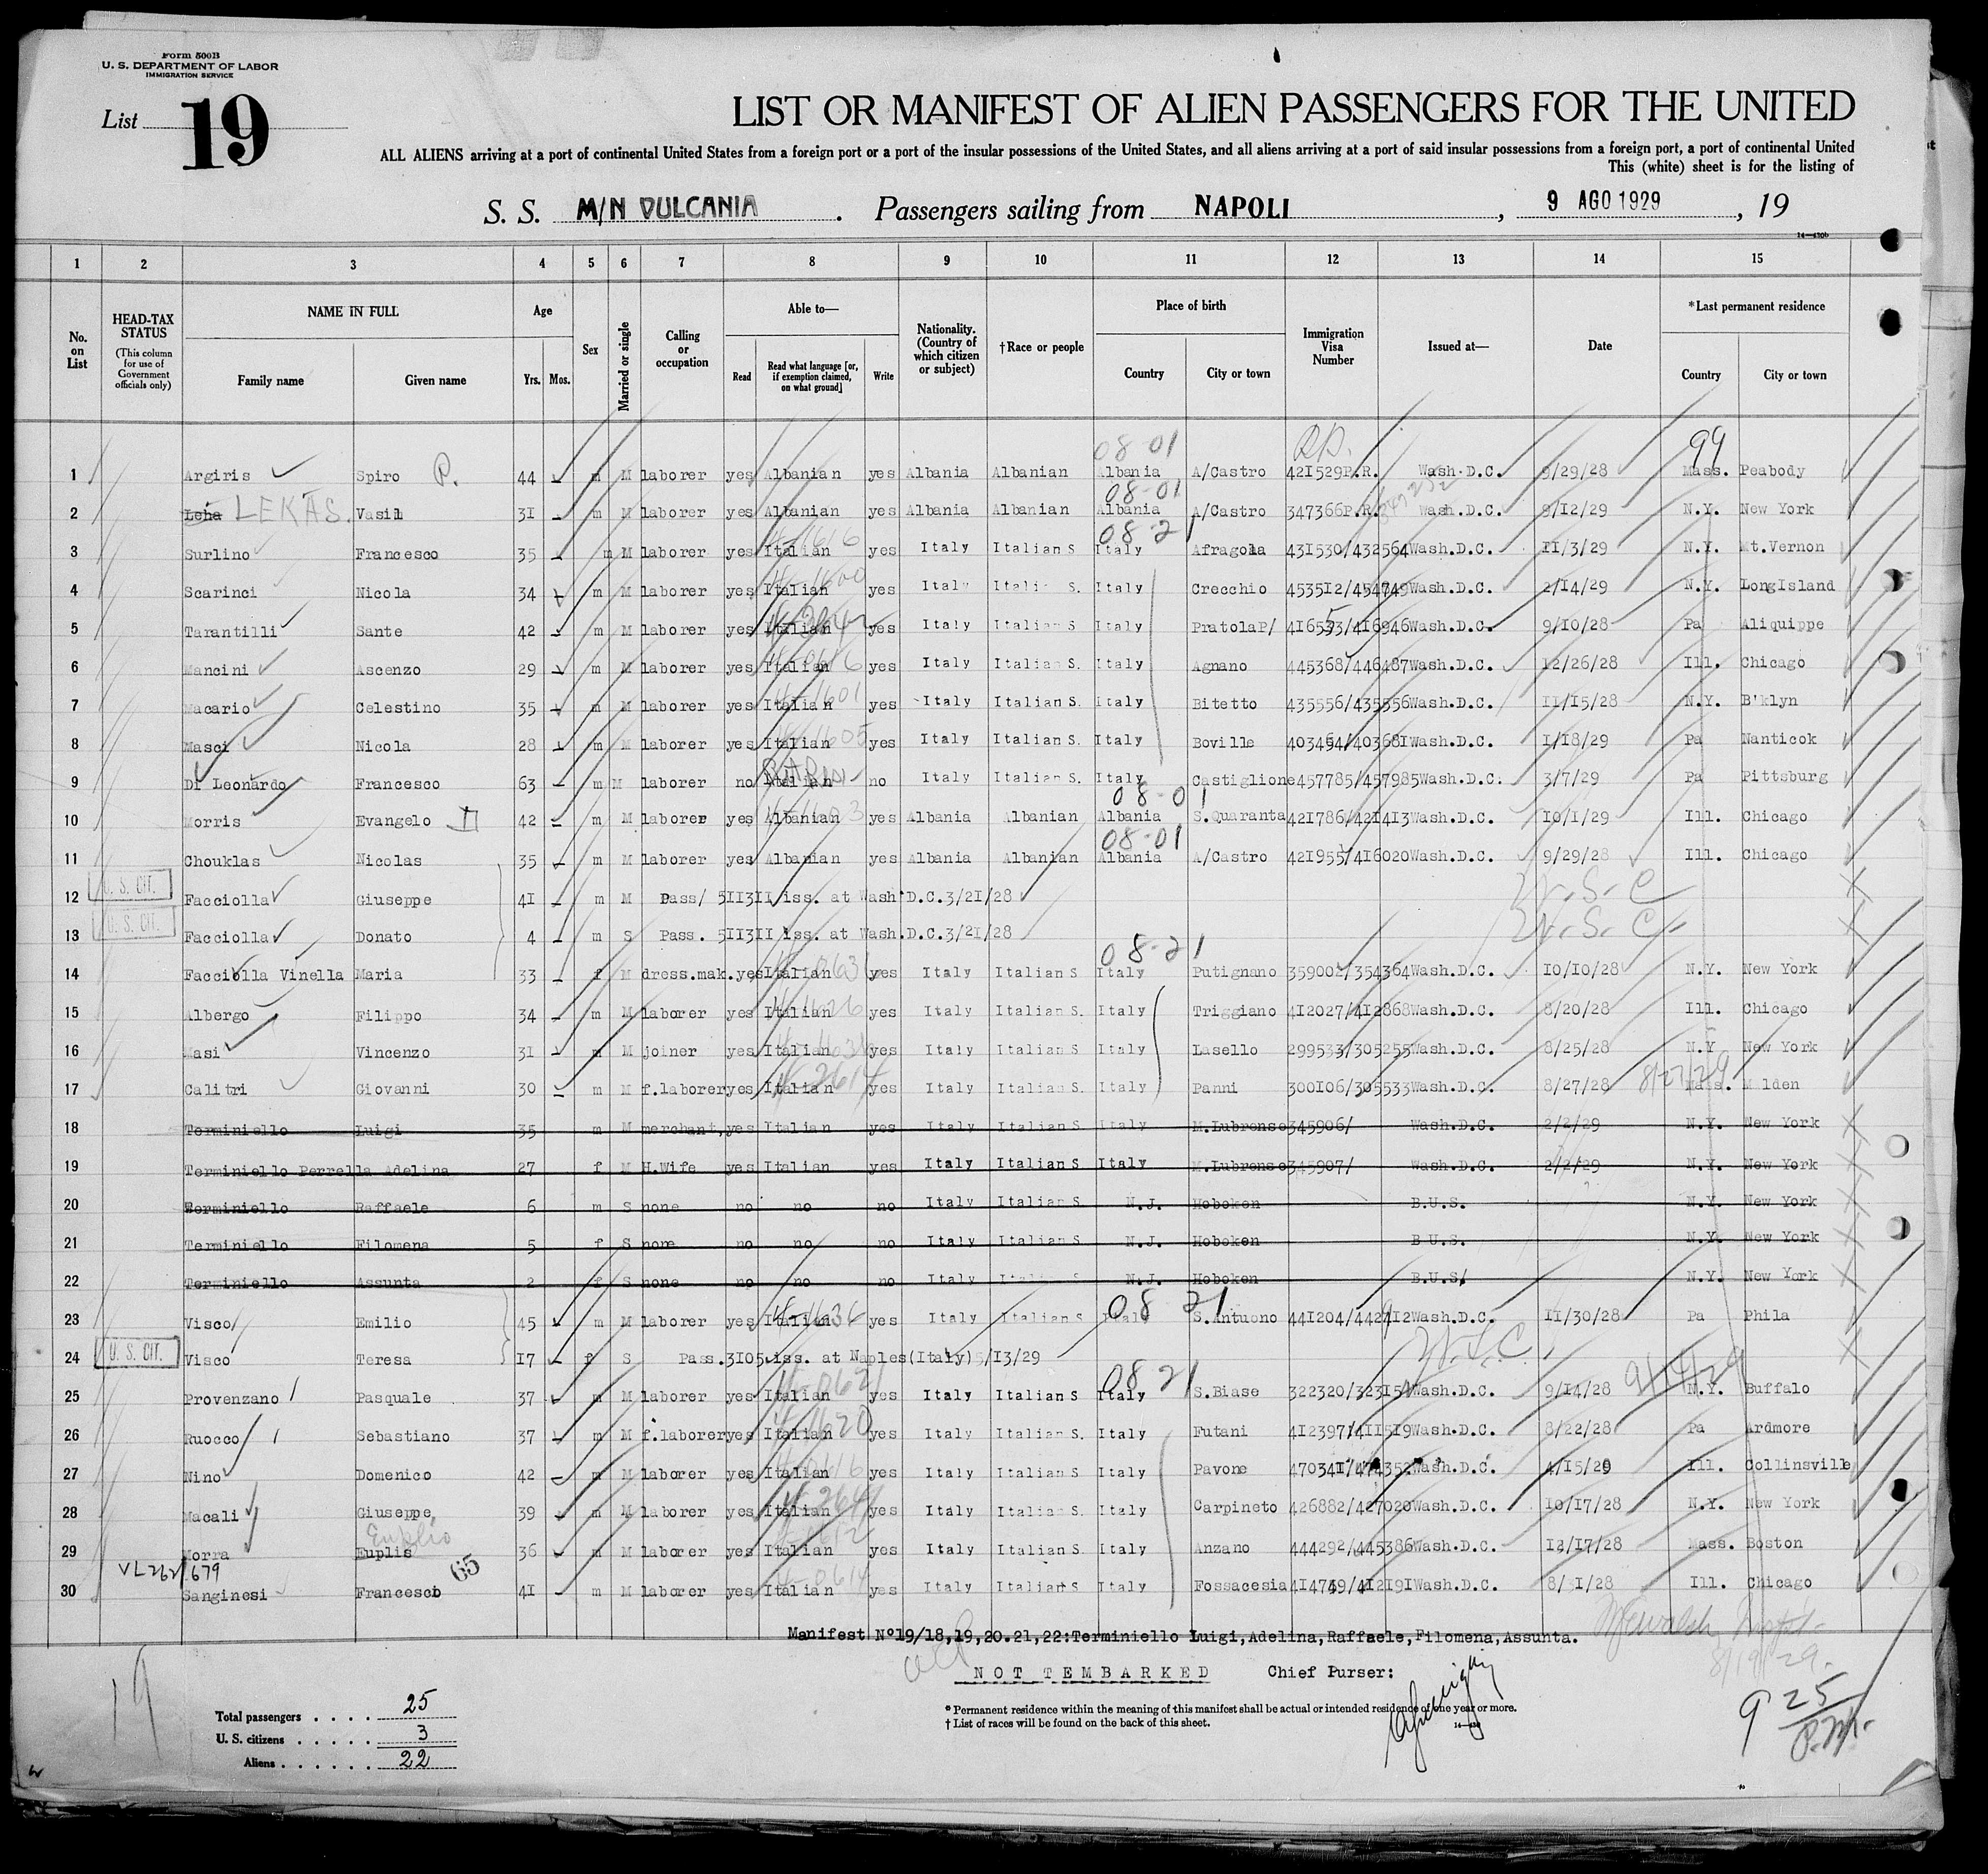 Form 500B
U. S. DEPARTMENT OF LABOR
IMMIGRATION SERVICE
List 19
LIST OR MANIFEST OF ALIEN PASSENGERS FOR THE UNITED
ALL ALIENS arriving at a port of continental United States from a foreign port or a port of the insular possessions of the United States, and all aliens arriving at a port of said insular possessions from a foreign port, a port of continental United
This (white) sheet is for the listing of
S. S. M/N VULCANIA . Passengers sailing from NAPOLI , 9 AGO 1929 , 19
14—430b
1 2 3 4 5 6 7 8 9 10 11 12 13 14 15
No. on List
HEAD-TAX STATUS (This column for use of Government officials only)
NAME IN FULL Family name Given name
Age Yrs. Mos.
Sex
Married or single
Calling or occupation
Able to— Read Read what language [or, if exemption claimed, on what ground] Write
Nationality. (Country of which citizen or subject)
†Race or people
Place of birth Country City or town
Immigration Visa Number
Issued at—
Date
*Last permanent residence Country City or town
08-01 99
1 Argiris Spiro P. 44 m M laborer yes Albanian yes Albania Albanian Albania A/Castro 421529P.R. Wash.D.C. 9/29/28 Mass. Peabody
08-01
2 Leha LEKAS. Vasil 31 m M laborer yes Albanian yes Albania Albanian Albania A/Castro 347366P.R. Wash.D.C. 9/12/29 N.Y. New York
08 21
3 Surlino Francesco 35 m M laborer yes Italian yes Italy Italian S Italy Afragola 431530/432564 Wash.D.C. 11/3/29 N.Y. Mt.Vernon
4 Scarinci Nicola 34 m M laborer yes Italian yes Italy Italian S. Italy Crecchio 453512/454749 Wash.D.C. 2/14/29 N.Y. LongIsland
5 Tarantilli Sante 42 m M laborer yes Italian yes Italy Italian S Italy PratolaP/ Wash.D.C. 9/10/28 Pa Aliquippe
6 Mancini Ascenzo 29 m M laborer yes Italian yes Italy Italian S. Italy Agnano 445368/446487 Wash.D.C. 12/26/28 Ill. Chicago
7 Macario Celestino 35 m M laborer yes Italian yes Italy Italian S. Italy Bitetto 435556/435356 Wash.D.C. 11/15/28 N.Y. B'klyn
8 Masci Nicola 28 m M laborer yes Italian yes Italy Italian S. Italy Boville 403464/403681 Wash.D.C. 1/18/29 Pa Nanticok
9 Di Leonardo Francesco 63 m M laborer no Italian no Italy Italian S. Italy Castiglione 457785/457985 Wash.D.C. 3/7/29 Pa Pittsburg
08-01
10 Morris Evangelo 42 m M laborer yes Albanian yes Albania Albanian Albania S.Quaranta 421786/421413 Wash.D.C. 10/1/29 Ill. Chicago
08-01
11 Chouklas Nicolas 35 m M laborer yes Albanian yes Albania Albanian Albania A/Castro 421955/416020 Wash.D.C. 9/29/28 Ill. Chicago
12 U. S. CIT. Facciolla Giuseppe 41 m M Pass/ 511311 iss. at Wash D.C. 3/21/28 U.S.C
13 U. S. CIT. Facciolla Donato 4 m S Pass. 511311 iss. at Wash.D.C. 3/21/28 U.S.C.
08-21
14 Facciolla Vinella Maria 33 f M dress.mak. yes Italian yes Italy Italian S Italy Putignano 359002/354364 Wash.D.C. 10/10/28 N.Y. New York
15 Albergo Filippo 34 m M laborer yes Italian yes Italy Italian S. Italy Triggiano 412027/412868 Wash.D.C. 8/20/28 Ill. Chicago
16 Masi Vincenzo 31 m M joiner yes Italian yes Italy Italian S Italy Lasello 299533/305255 Wash.D.C. 8/25/28 N.Y New York
17 Calitri Giovanni 30 m M f.laborer yes Italian yes Italy Italian S. Italy Panni 300106/305533 Wash.D.C. 8/27/28 8/27/29 Mass. Malden
18 Terminiello Luigi 35 m M merchant, yes Italian yes Italy Italian S Italy M.Lubrense 345906/ Wash.D.C. 2/2/29 N.Y. New York
19 Terminiello Perrella Adelina 27 f M H.Wife yes Italian yes Italy Italian S Italy M.Lubrense 345907/ Wash.D.C. 2/2/29 N.Y. New York
20 Terminiello Raffaele 6 m S none no no no Italy Italian S. N.J. Hoboken B.U.S. N.Y. New York
21 Terminiello Filomena 5 f S none no no no Italy Italian S N.J. Hoboken B U.S. N.Y. New York
22 Terminiello Assunta 2 f S none no no no Italy Italian S N.J. Hoboken B.U.S. N.Y. New York
08 21
23 Visco Emilio 45 m M laborer yes Italian yes Italy Italian S Italy S.Antuono Wash.D.C. 11/30/28 Pa Phila
24 U. S. CIT. Visco Teresa 17 f S Pass.3105 iss. at Naples(Italy) 5/13/29 U.S.C.
08 21
25 Provenzano Pasquale 37 m M laborer yes Italian yes Italy Italian S Italy S.Biase Wash.D.C. 9/14/28 9/14/29 N.Y. Buffalo
26 Ruocco Sebastiano 37 m M f.laborer yes Italian yes Italy Italian S. Italy Futani 412397/411519 Wash.D.C. 8/22/28 Pa Ardmore
27 Nino Domenico 42 m M laborer yes Italian yes Italy Italian S Italy Pavone Wash.D.C. 4/15/29 Ill. Collinsville
28 Macali Giuseppe 39 m M laborer yes Italian yes Italy Italian S Italy Carpineto 426882/427020 Wash.D.C. 10/17/28 N.Y. New York
Euplio
29 Morra Euplis 36 m M laborer yes Italian yes Italy Italian S. Italy Anzano 444292/445386 Wash.D.C. 12/17/28 Mass. Boston
VL262/679 65
30 Sanginesi Francesco 41 m M laborer yes Italian yes Italy Italian S Italy Fossacesia Wash.D.C. Ill. Chicago
Manifest Nº19/18,19,20.21,22:Terminiello Luigi,Adelina,Raffaele,Filomena,Assunta.
NOT TEMBARKED Chief Purser:
8/19/29.
* Permanent residence within the meaning of this manifest shall be actual or intended residence of one year or more.
† List of races will be found on the back of this sheet.
19
Total passengers . . . . 25
U. S. citizens . . . . . 3
Aliens . . . . . . 22
9 25 P.M.